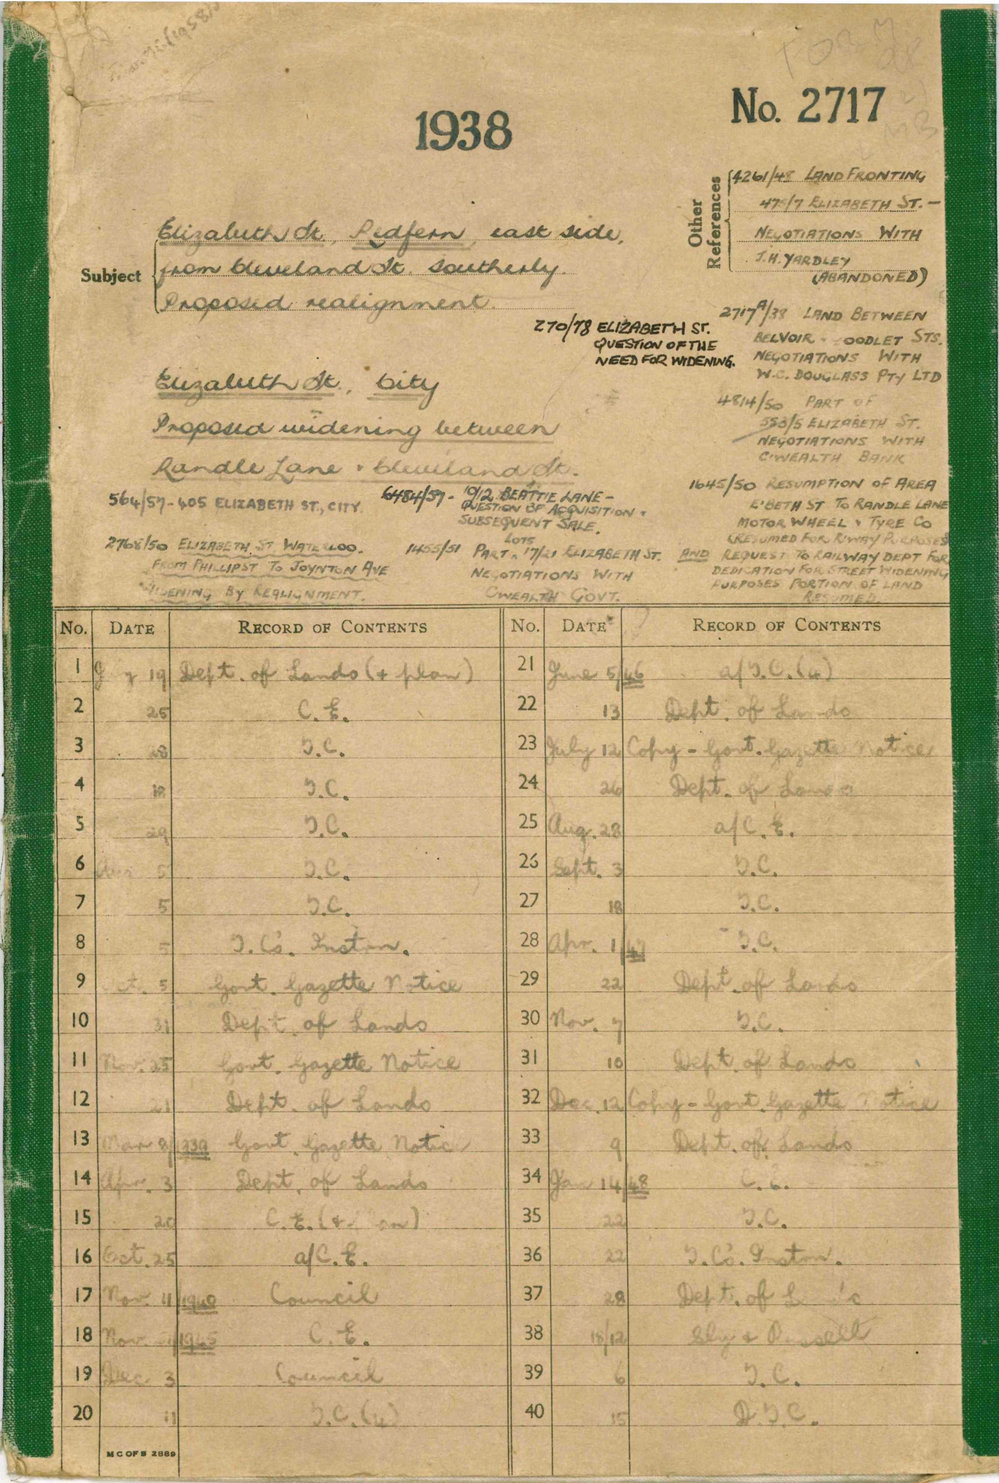 1938
No. 2717
Other References
4261/48 LAND FRONTING
475/7 ELIZABETH ST. –
NEGOTIATIONS WITH
J.H. YARDLEY
(ABANDONED)
Subject
Elizabeth St, Redfern, east side,
from Cleveland St. Southerly.
Proposed realignment.
270/78 ELIZABETH ST.
QUESTION OF THE
NEED FOR WIDENING.
2717A/38 LAND BETWEEN
BELVOIR - OODLET STS.
NEGOTIATIONS WITH
W.C. DOUGLASS PTY LTD
4814/50 PART OF
553/5 ELIZABETH ST.
NEGOTIATIONS WITH
C'WEALTH BANK
Elizabeth St, City
Proposed widening between
Randle Lane & Cleveland St.
564/57 - 405 ELIZABETH ST, CITY.
6484/57 - 10/2 BEATTIE LANE –
QUESTION OF ACQUISITION &
SUBSEQUENT SALE.
1645/50 RESUMPTION OF AREA
E'BETH ST TO RANDLE LANE
MOTOR WHEEL & TYRE CO
(RESUMED FOR R'WAY PURPOSES
AND REQUEST TO RAILWAY DEPT FOR
DEDICATION FOR STREET WIDENING
PURPOSES PORTION OF LAND
RESUMED.
2768/50 ELIZABETH ST WATERLOO.
FROM PHILLIP ST TO JOYNTON AVE
WIDENING BY REALIGNMENT.
1455/51 PART LOTS 17/21 ELIZABETH ST.
NEGOTIATIONS WITH
C'WEALTH GOVT.
No. DATE RECORD OF CONTENTS
1 19 Dept. of Lands (+ plan)
2 25 C. E.
3 28 T.C.
4 18 T.C.
5 29 T.C.
6 Aug 5 T.C.
7 5 T.C.
8 5 T.C's. Inston.
9 Oct. 5 Govt. Gazette Notice
10 31 Dept. of Lands
11 Nov. 25 Govt. Gazette Notice
12 21 Dept. of Lands
13 Mar 8/1939 Govt. Gazette Notic
14 Apr. 3 Dept. of Lands
15 20 C. E. (+ an)
16 Oct. 25 a/C. E.
17 Nov. 11/1940 Council
18 Nov. /1945 C. E.
19 Dec 3 Council
20 11 T.C. (4)
No. DATE RECORD OF CONTENTS
21 June 5/46 a/T.C. (4)
22 13 Dept. of Lands
23 July 12 Copy - Govt. Gazette Notice
24 26 Dept. of Lands
25 Aug. 28 a/C. E.
26 Sept. 3 T.C.
27 18 T.C.
28 Apr. 1/47 T.C.
29 22 Dept. of Lands
30 Nov. 7 T.C.
31 10 Dept. of Lands
32 Dec. 12 Copy - Govt. Gazette Notice
33 9 Dept. of Lands
34 Jan 14/48 C. E.
35 22 T.C.
36 22 T.C's. Inston.
37 28 Dept. of L
38 18/12 Sly & Russell
39 6 T.C.
40 15 D.T.C.
M C OF S 2889